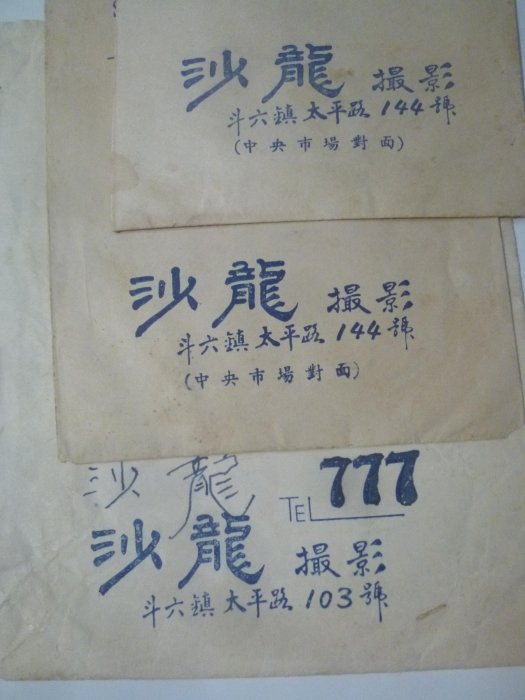 沙龍 撮影
斗六鎮太平路144號
(中央市場對面)
沙龍 撮影
斗六鎮太平路144號
(中央市場對面)
沙龍
TEL 777
沙龍 撮影
斗六鎮太平路103號